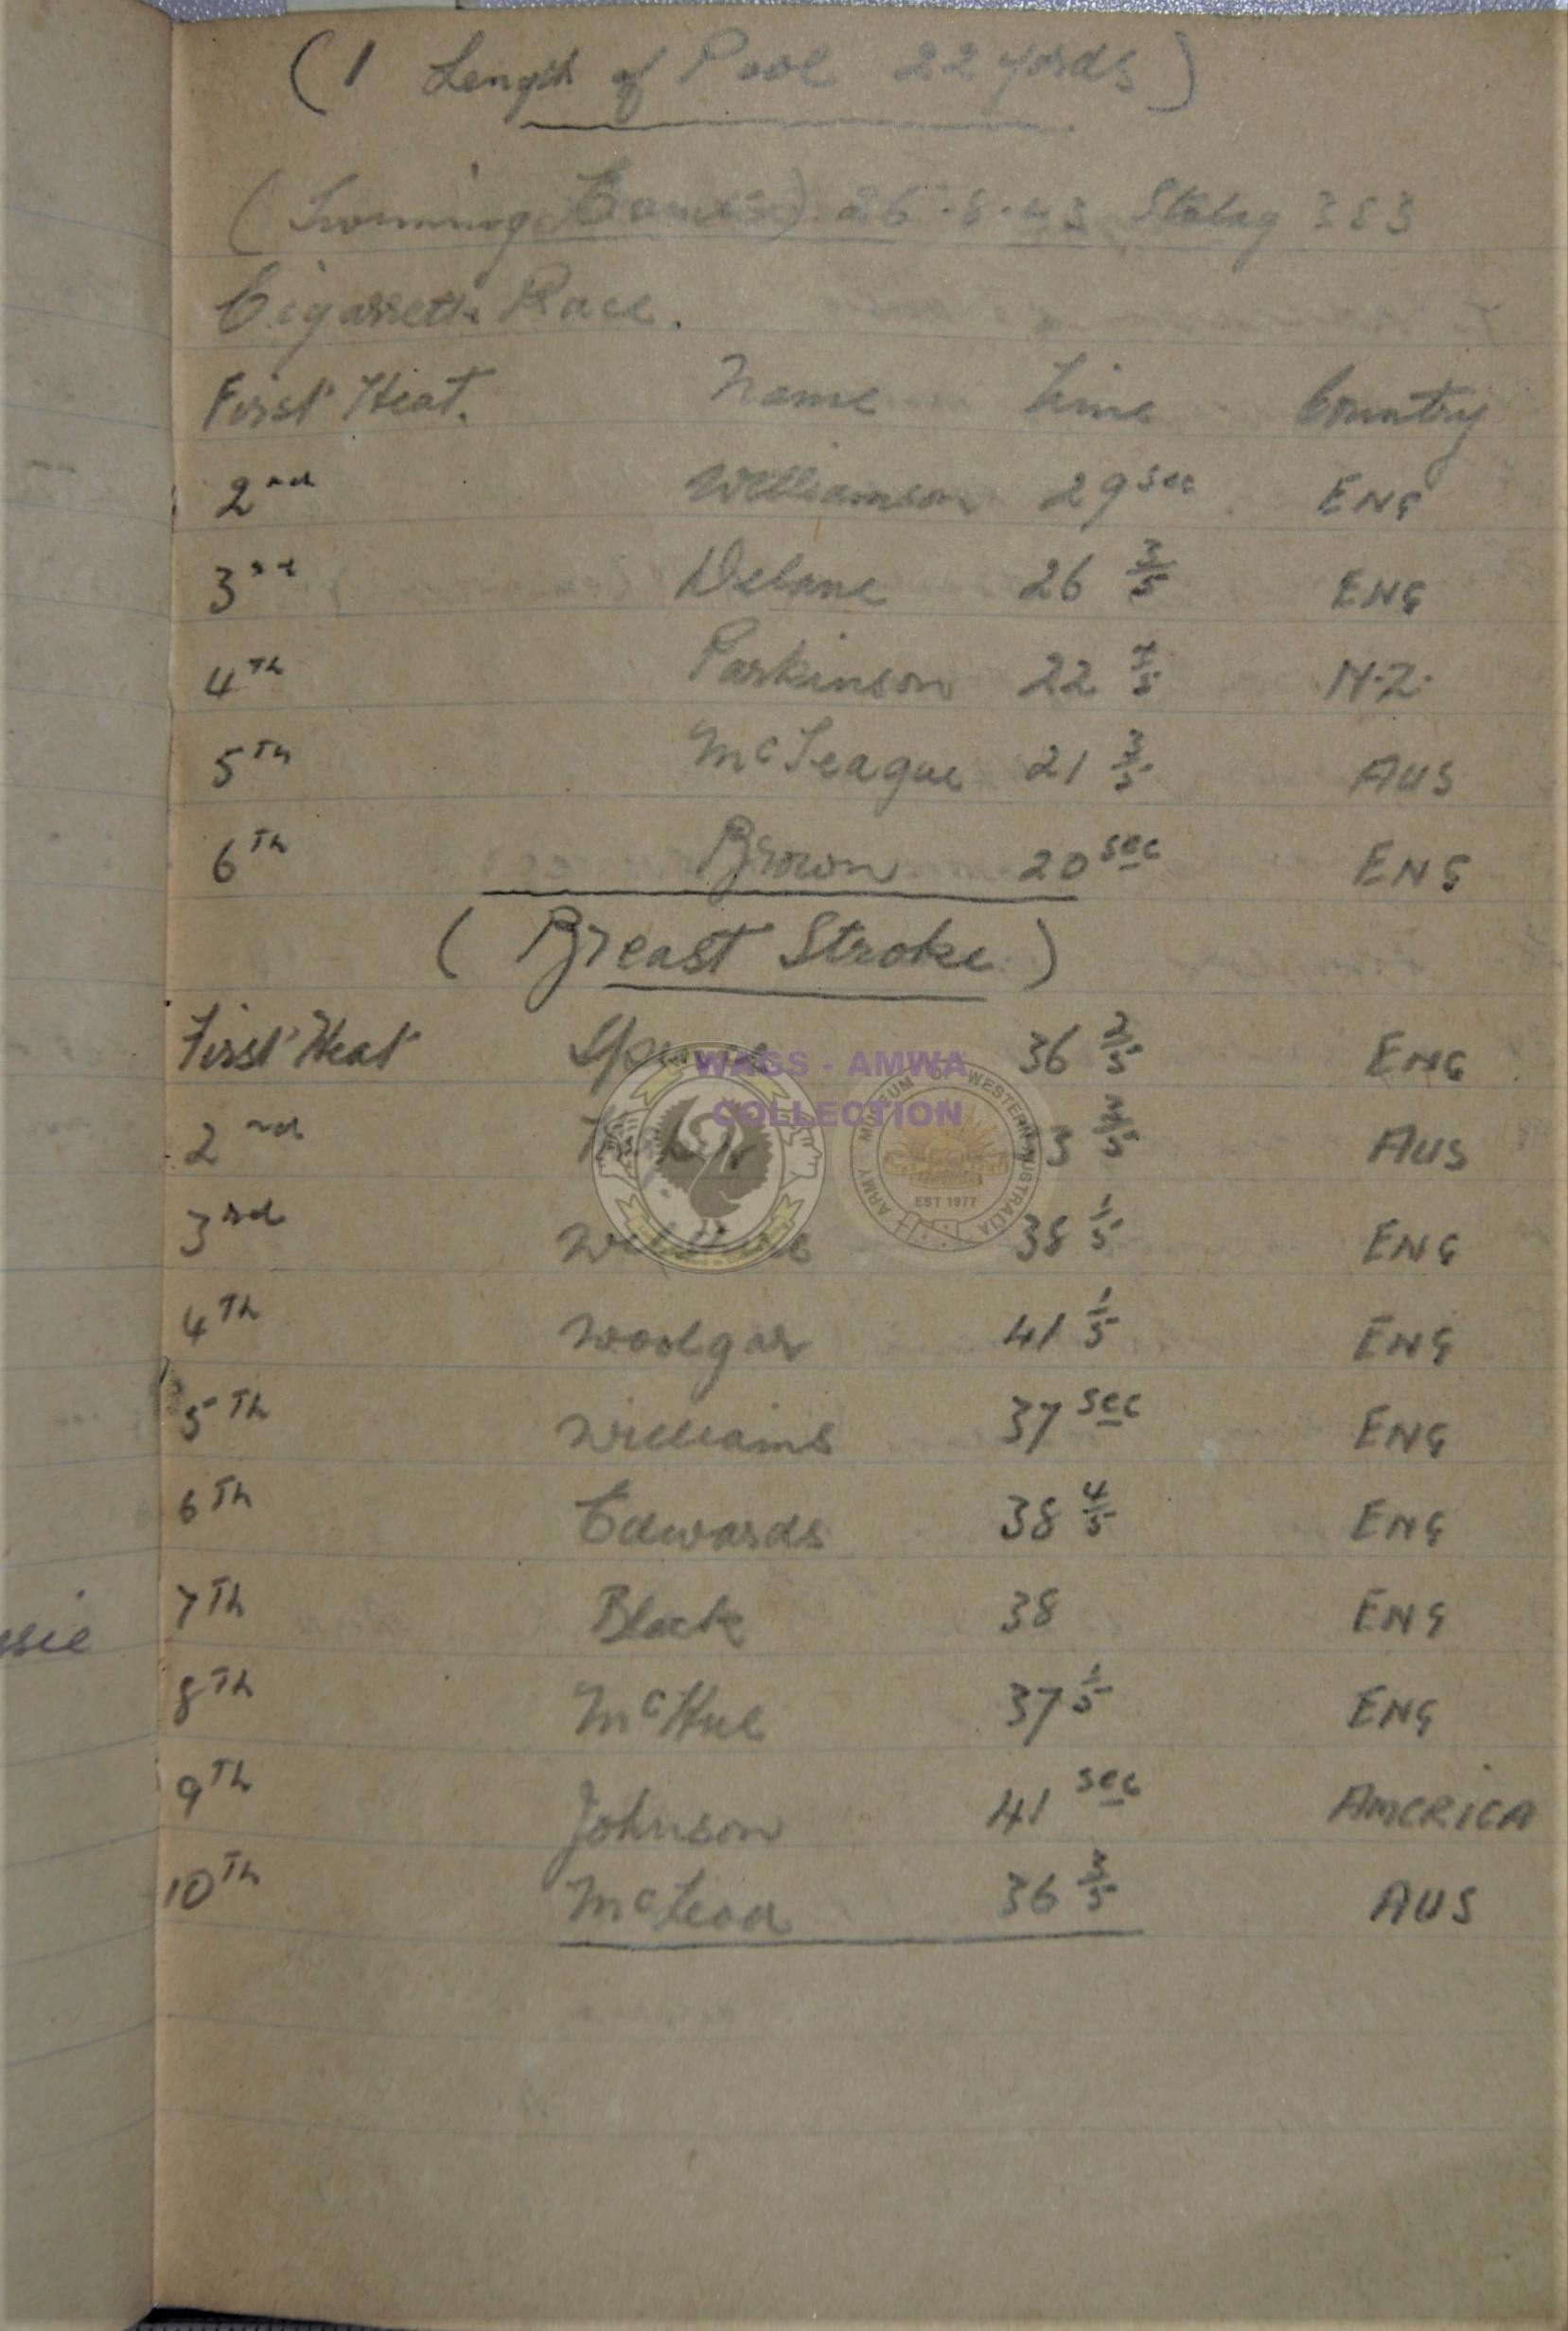 (1 Length of Pool 22 yards)
(Swimming 26.8.43 Stalag 383
Cigarrette Race.
First Heat. Name Time Country
2nd Williamson 29 sec ENG
3rd Delane 26 3/5 ENG
4Th Parkinson 22 /5 N.Z.
5Th McTeague 21 3/5 AUS
6Th Brown 20 sec ENG
( Breast Stroke )
First Heat 36 2/5 ENG
2nd 3/5 AUS
3rd 38 1/5 ENG
4Th Woolgar 41 1/5 ENG
5Th Williams 37 sec ENG
6Th Edwards 38 4/5 ENG
7Th Black 38 ENG
8Th McHue 37 1/5 ENG
9Th Johnson 41 sec AMERICA
10Th McLeod 36 3/5 AUS
WAGS - AMWA
COLLECTION
ARMY MUSEUM OF WESTERN AUSTRALIA
EST 1977
ssie